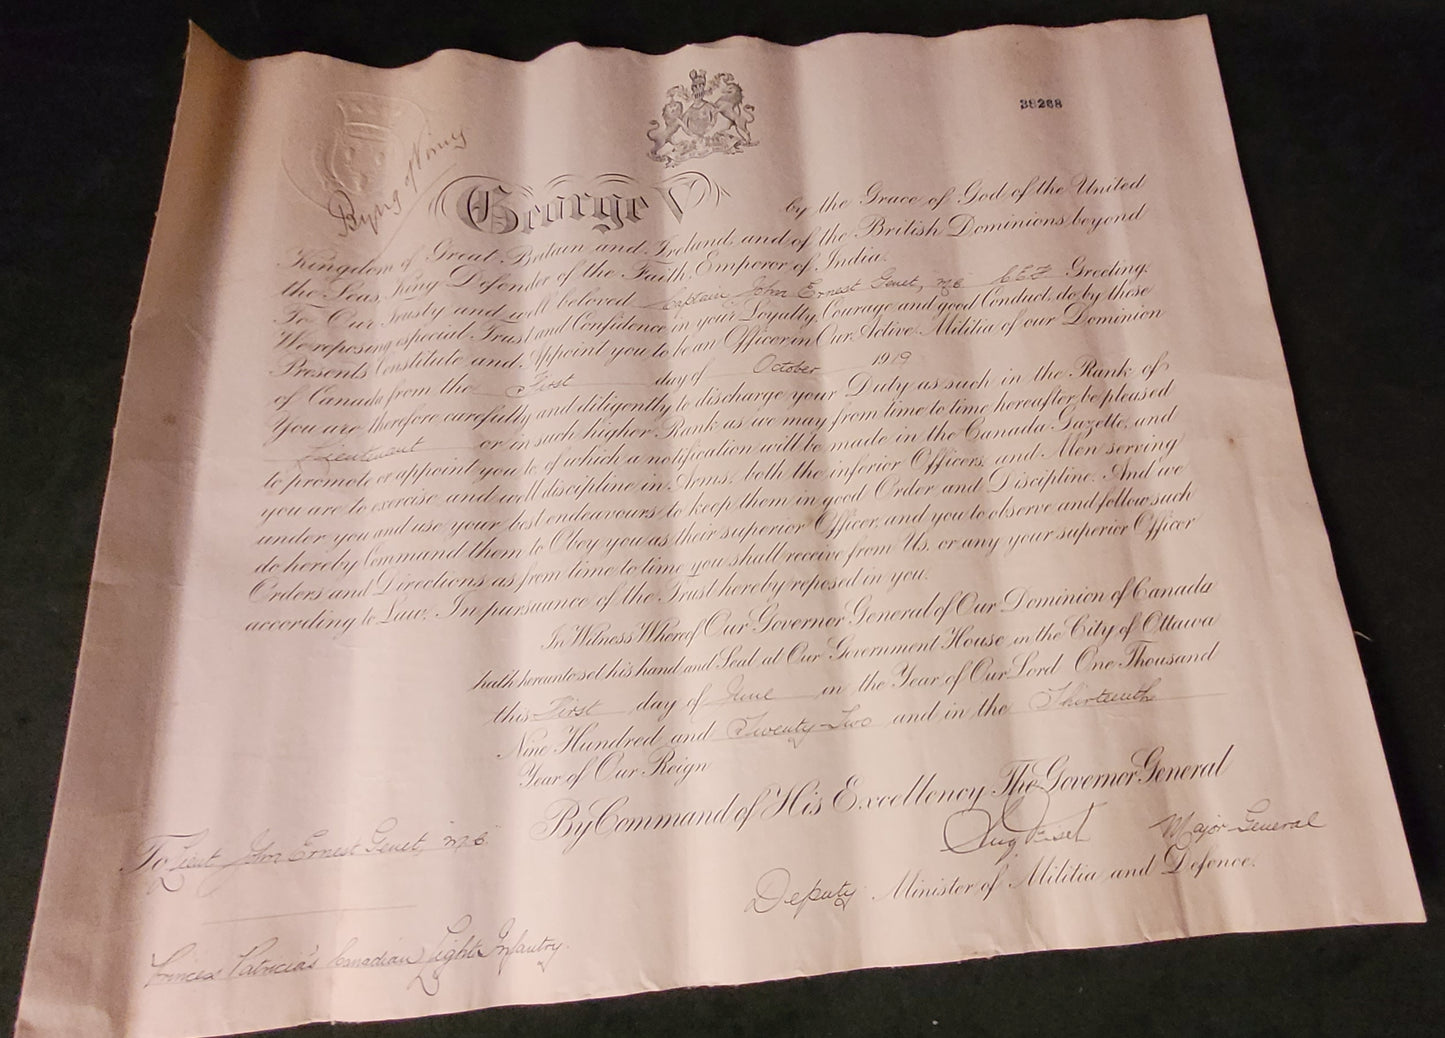 38268
Byng of Vimy
George V by the Grace of God of the United
Kingdom of Great Britain and Ireland, and of the British Dominions beyond
the Seas, King, Defender of the Faith, Emperor of India.
To Our Trusty and well beloved Captain John Ernest Genet, M.C. C.E.F. Greeting.
We reposing especial Trust and Confidence in your Loyalty, Courage and good Conduct, do by these
Presents Constitute and Appoint you to be an Officer in Our Active Militia of our Dominion
of Canada from the First day of October 1919
You are therefore carefully and diligently to discharge your Duty as such in the Rank of
Lieutenant or in such higher Rank as we may from time to time hereafter be pleased
to promote or appoint you to of which a notification will be made in the Canada Gazette, and
you are to exercise and well discipline in Arms, both the inferior Officers and Men serving
under you and use your best endeavours to keep them in good Order and Discipline. And we
do hereby Command them to Obey you as their superior Officer, and you to observe and follow such
Orders and Directions as from time to time you shall receive from Us, or any your superior Officer
according to Law, In pursuance of the Trust hereby reposed in you.
In Witness Whereof Our Governor General of Our Dominion of Canada
hath hereunto set his hand and Seal at Our Government House in the City of Ottawa
this First day of June in the Year of Our Lord One Thousand
Nine Hundred and Twenty-Two and in the Thirteenth
Year of Our Reign
By Command of His Excellency The Governor General
Eug Fiset Major-General
Deputy Minister of Militia and Defence.
To Lieut John Ernest Genet, M.C.
Princess Patricia's Canadian Light Infantry.